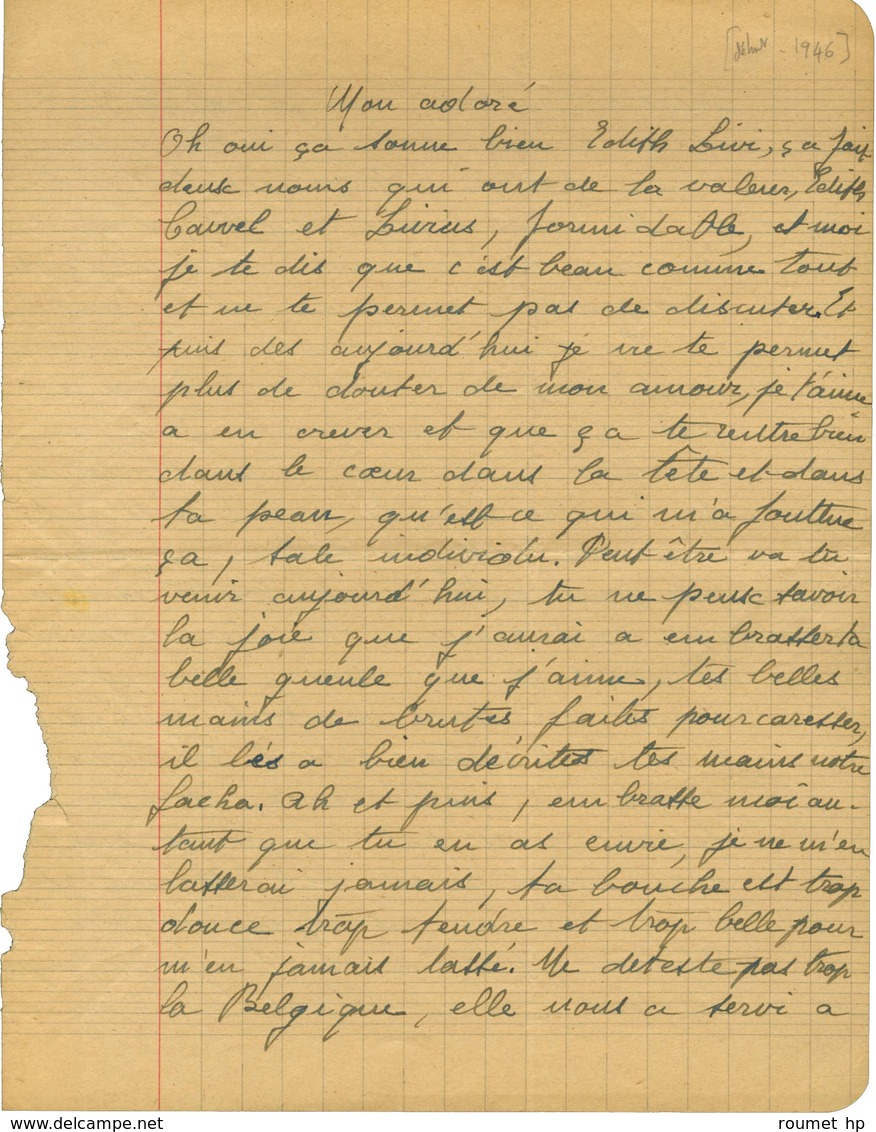 [début - 1946]
Mon adoré
Oh oui ça sonne bien Edith Livi, ça fait
deux noms qui ont de la valeur, Edith
Cavvel et Livius, formidable, et moi
je te dis que c'est beau comme tout
et ne te permet pas de discuter. Et
puis des aujourd'hui je ne te permet
plus de douter de mon amour, je t'aime
a en crever et que ça te rentre bien
dans le cœur dans la tête et dans
ta peau, qu'est-ce qui m'a fouttue
ça, sale individu. Peut être va tu
venir aujourd'hui, tu ne peux savoir
la joie que j'aurai a embrasser ta
belle gueule que j'aime, tes belles
mains de brutes faites pour caresser,
il les a bien décrites tes mains notre
Sacha. Ah et puis, embrasse moi au-
tant que tu en as envie, je ne m'en
lasserai jamais, ta bouche est trop
douce trop tendre et trop belle pour
m'en jamais lassé. Ne deteste pas trop
la Belgique, elle nous a servi a
www.delcampe.net
roumet hp